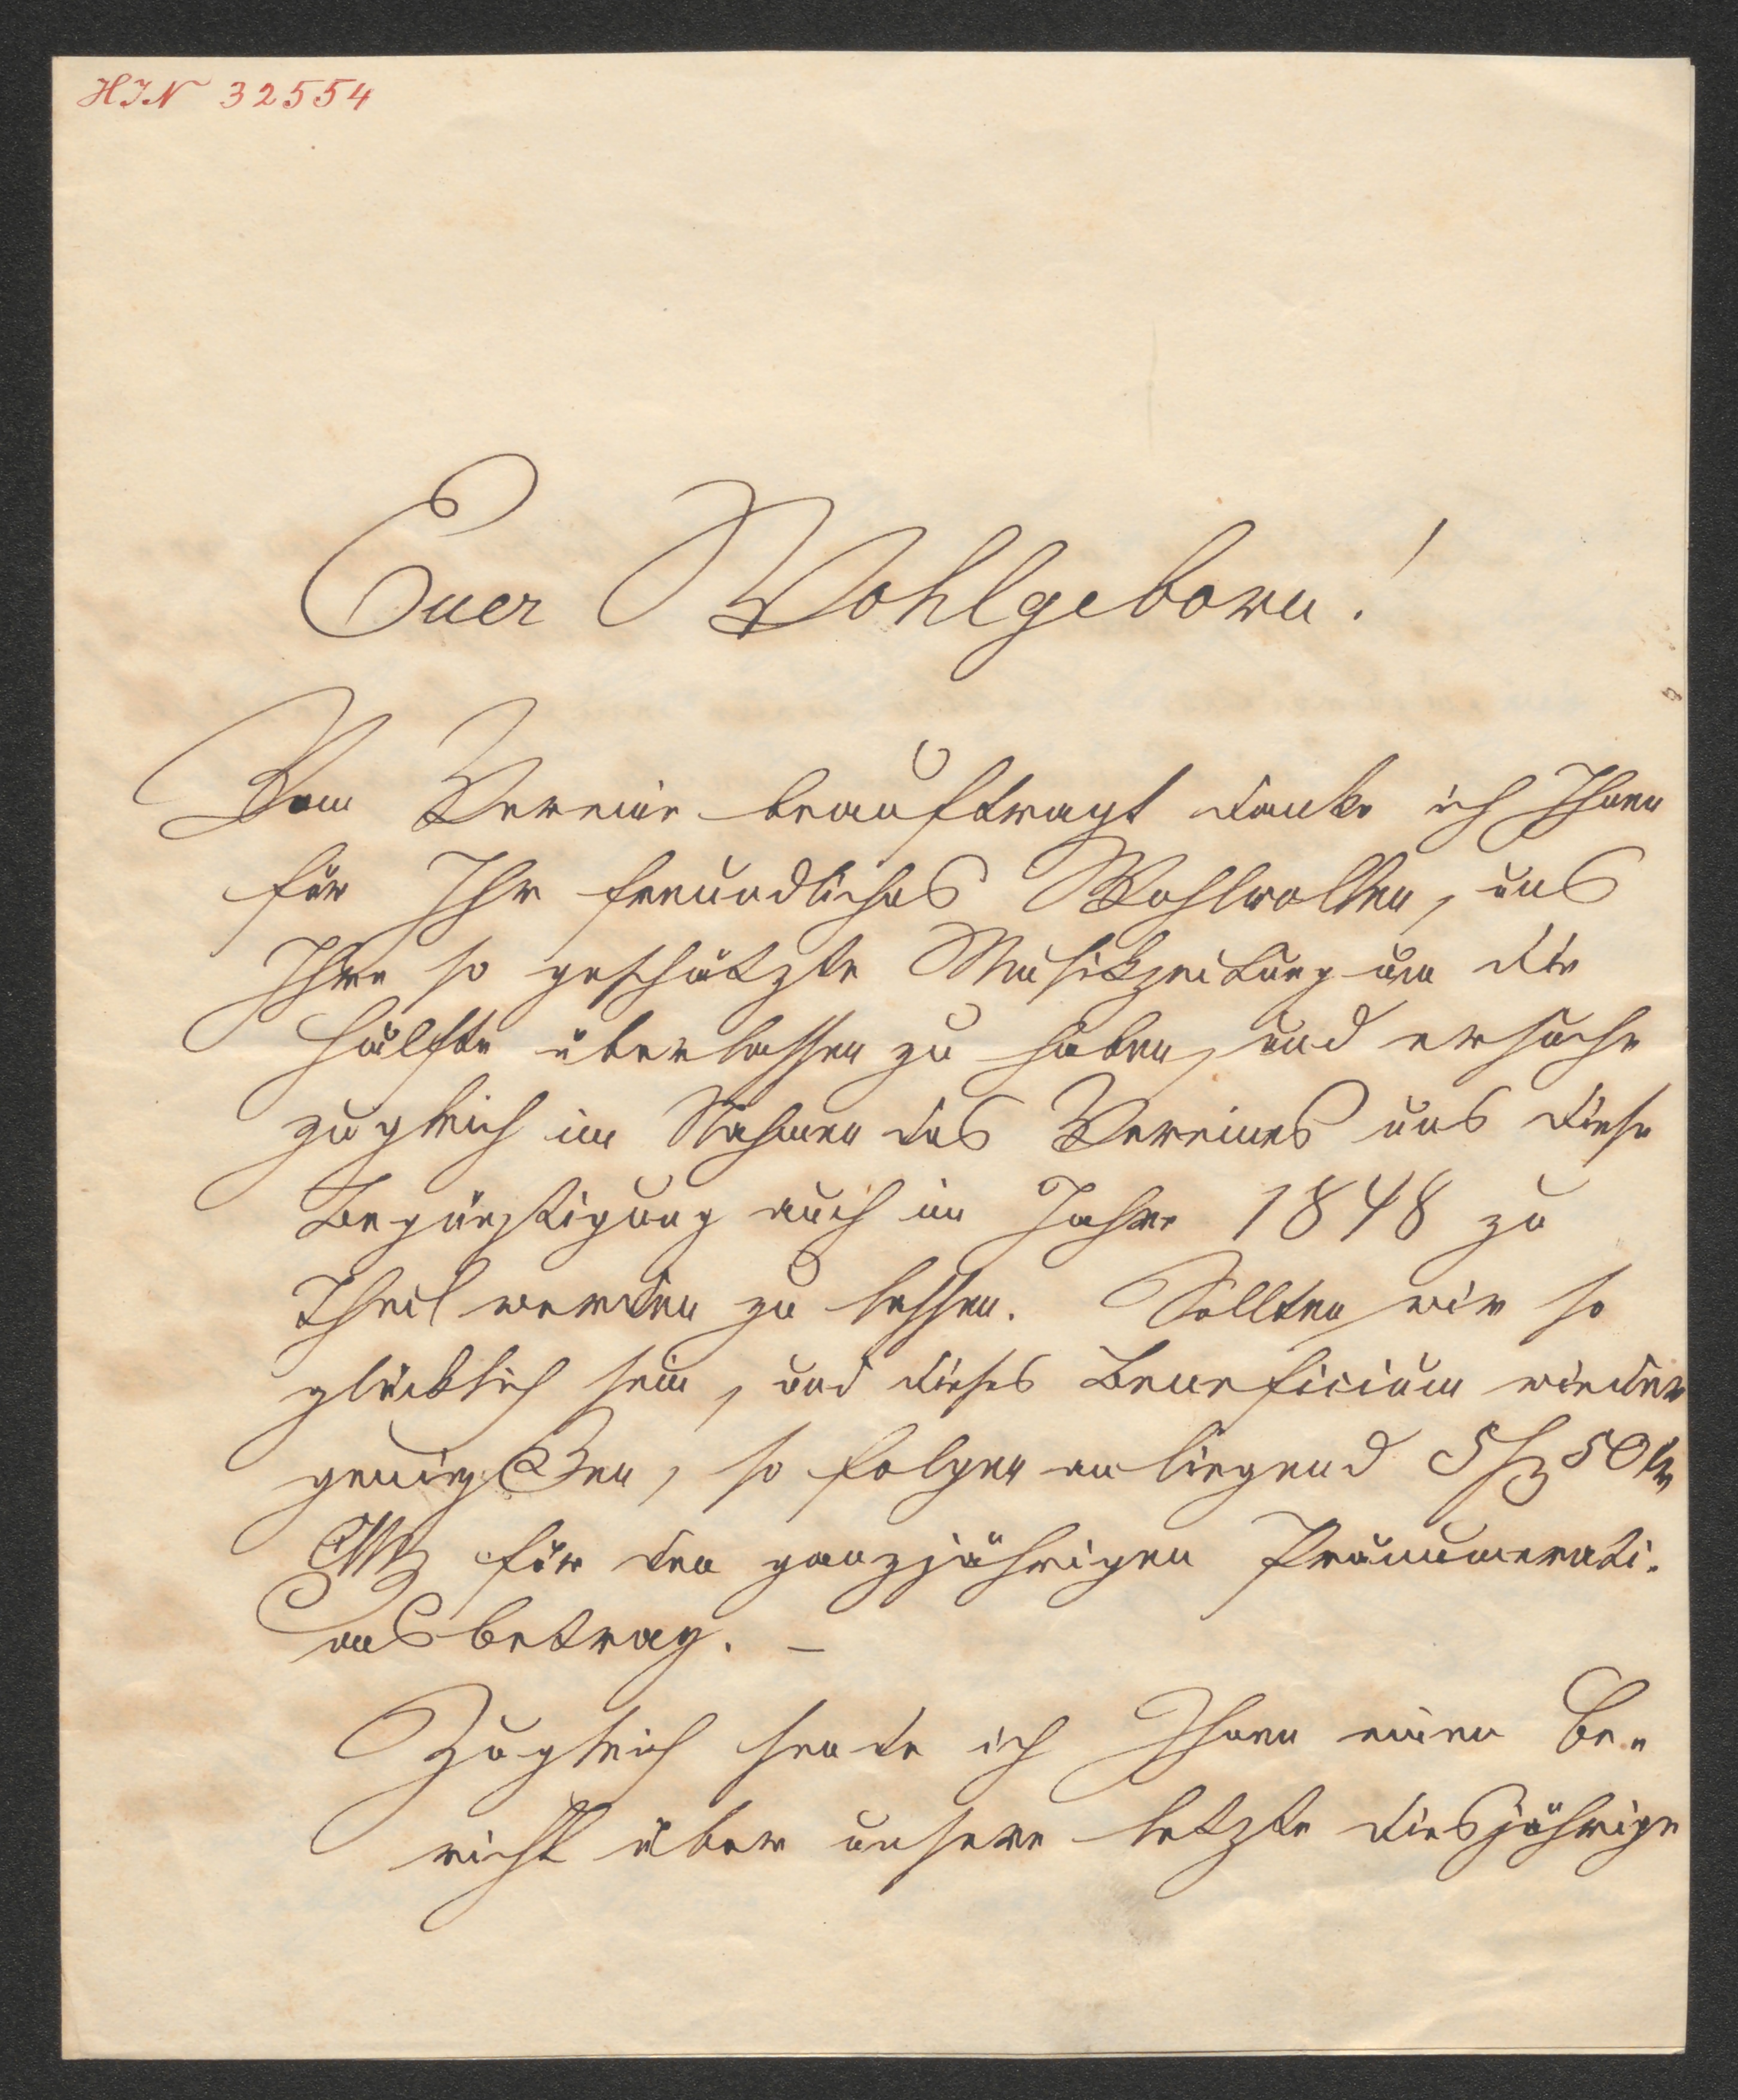 HIN 32554
Euer Wohlgeborn!
Vom Vereine beauftragt danke ich Ihnen
für Ihr freundliches Wohlwollen, uns
Ihre so geschätzte Musikzeitung um die
Hälfte überlassen zu haben, und ersuche
zugleich im Nahmen des Vereines uns diese
Begünstigung auch im Jahre 1848 zu
Theil werden zu lassen. Sollten wir so
glücklich sein, und dieses Beneficium wieder
genießen, so folgen anliegend 5 f 50 kr
CMz für den ganzjährigen Pränumerati-
onsbetrag. –
Zugleich sende ich Ihnen einen Be-
richt über unsere letzte diesjährige